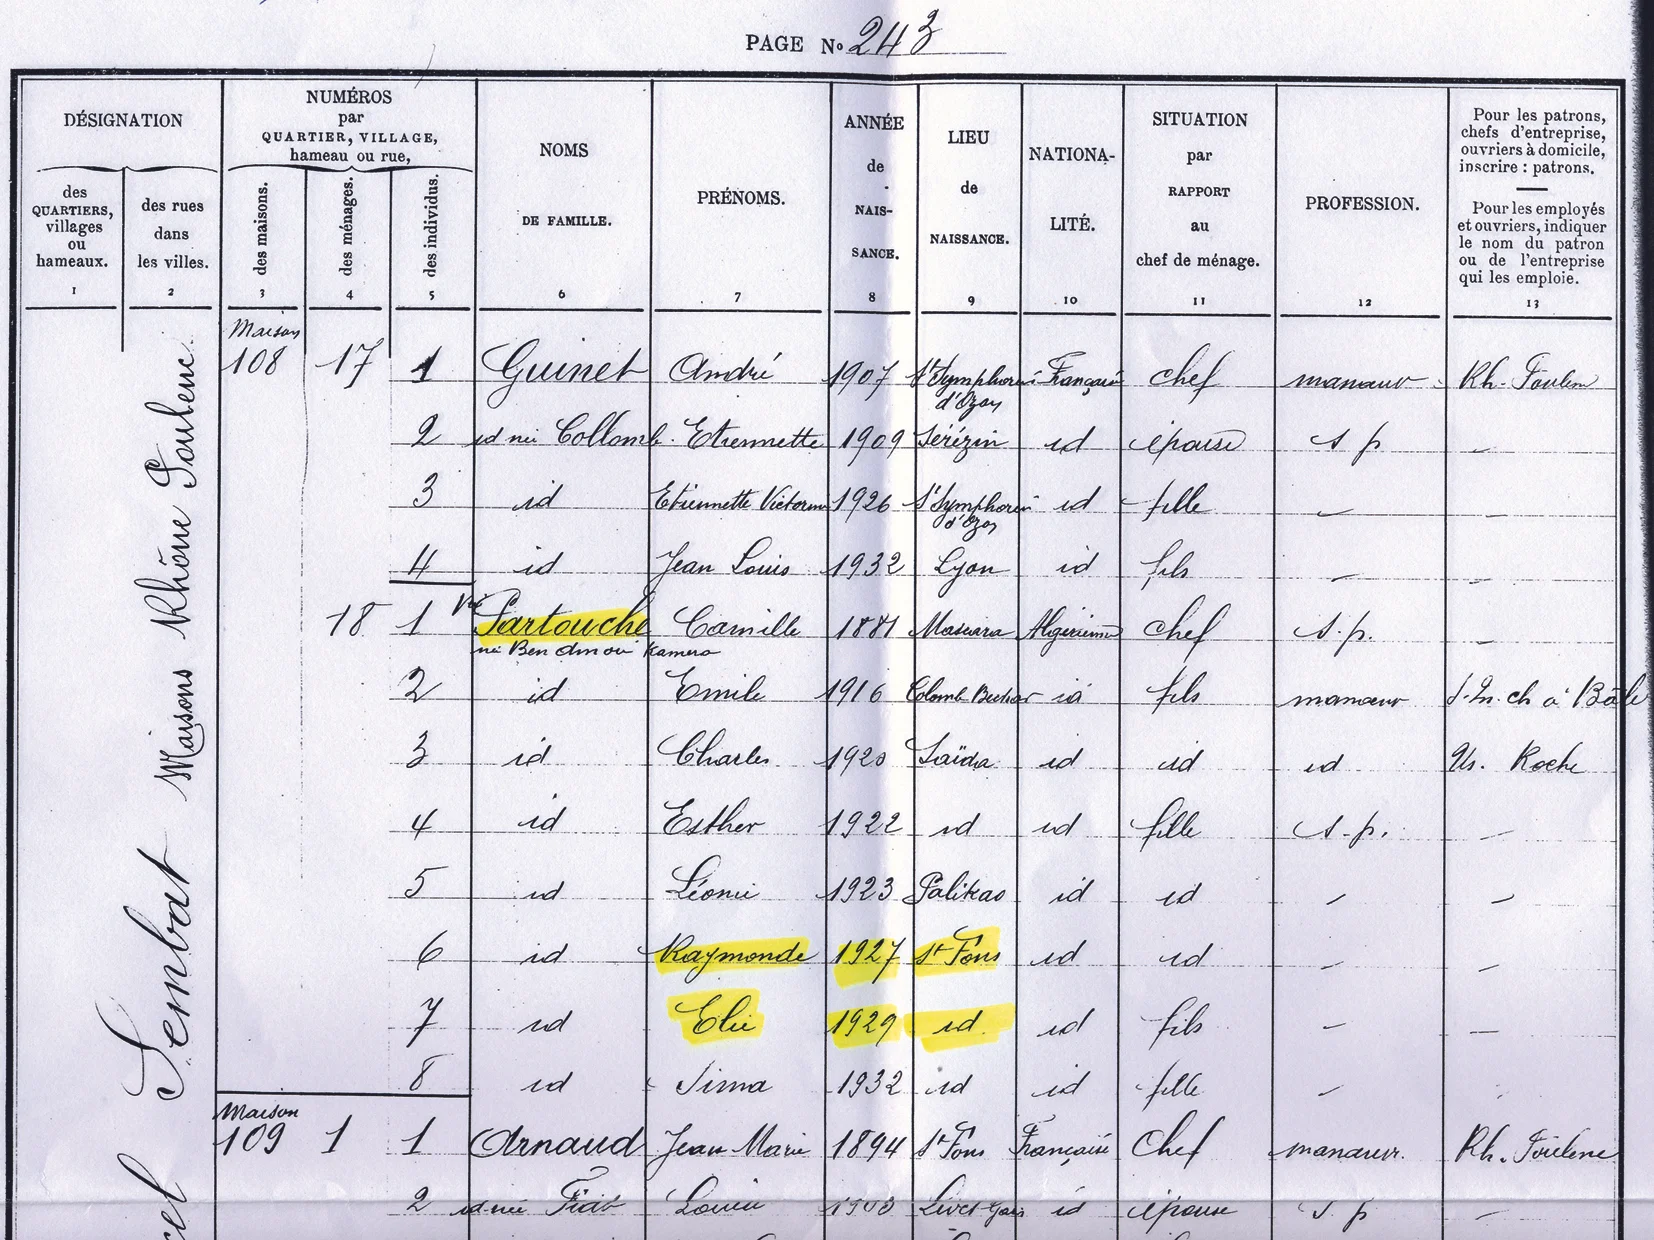 PAGE No 243
DÉSIGNATION
des QUARTIERS, villages ou hameaux.
1
des rues dans les villes.
2
NUMÉROS par QUARTIER, VILLAGE, hameau ou rue,
des maisons.
3
des ménages.
4
des individus.
5
NOMS DE FAMILLE.
6
PRÉNOMS.
7
ANNÉE de NAIS- SANCE.
8
LIEU de NAISSANCE.
9
NATIONA- LITÉ.
10
SITUATION par RAPPORT au chef de ménage.
11
PROFESSION.
12
Pour les patrons, chefs d'entreprise, ouvriers à domicile, inscrire : patrons.
Pour les employés et ouvriers, indiquer le nom du patron ou de l'entreprise qui les emploie.
13
Sembat Maisons Rhône Poulenc
Maison
108 17 1 Guinet André 1907 St Symphorien d'Ozon Française chef manœuv Rh. Poulenc
2 id née Collomb Etiennette 1909 Sérézin id épouse s p –
3 id Etiennette Victorine 1926 St Symphorien d'Ozon id fille – –
4 id Jean Louis 1932 Lyon id fils – –
18 1 Vve Partouche Camille 1881 Mascara Algérienne chef s. p. –
née Ben Amou Kamera
2 id Emile 1916 Colomb Bechar id fils manœuv ch à Bâle
3 id Charles 1920 Saïda id id id Us. Roche
4 id Esther 1922 id id fille s. p. –
5 id Léonie 1923 Palikao id id – –
6 id Raymonde 1927 St Fons id id – –
7 id Elie 1929 id id fils – –
8 id Sima 1932 id id fille –
Maison
109 1 1 Arnaud Jean Marie 1894 St Fons Française Chef manœuv. Rh. Poulenc
2 id née Louise 1903 id épouse s. p –